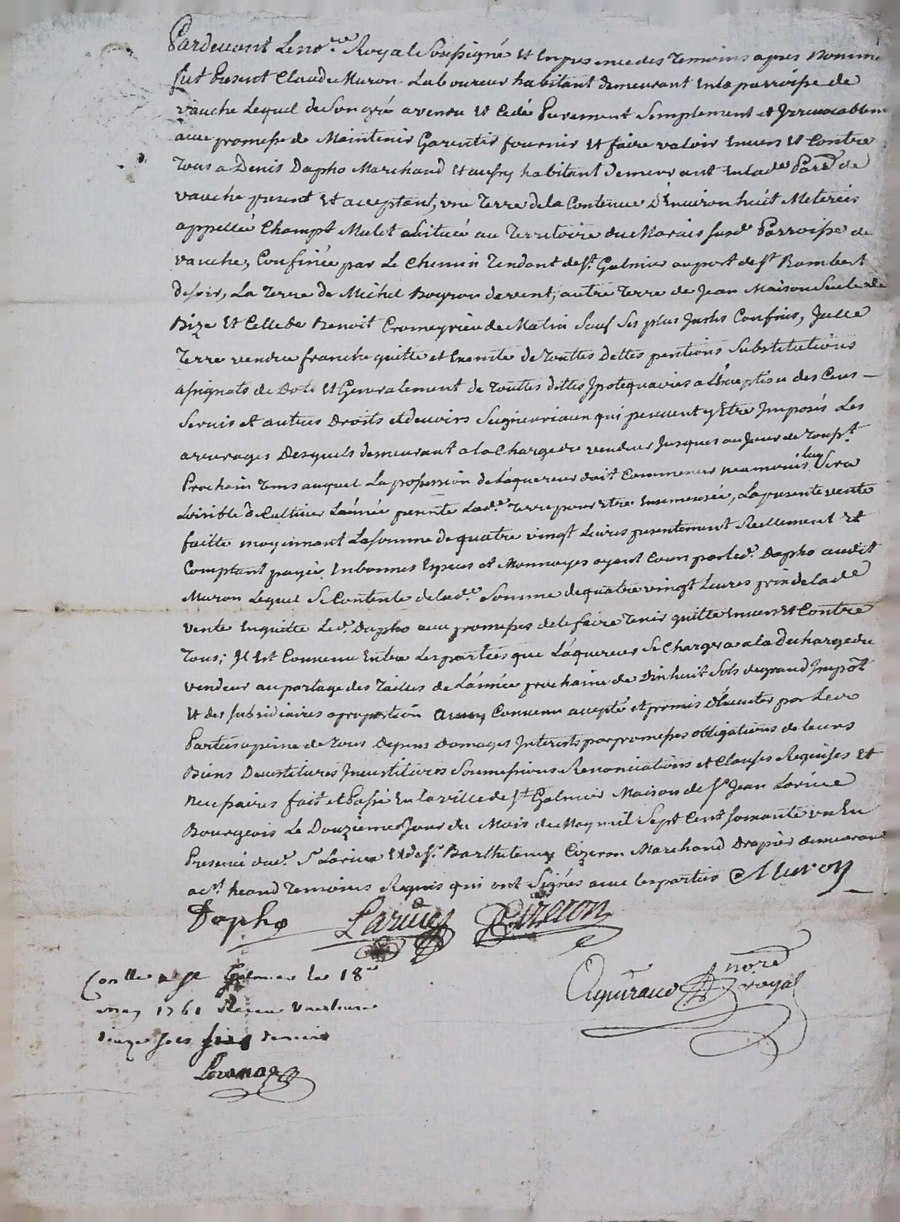 Pardevant Le no.re Royal Soussigné et En presence des Temoins apres Nommé
fut Present Claude Muron Laboureur habitant demeurant En la parroisse de
vauche Lequel de Son gré a vendu et Cedé Purement Simplement et Irrevocablem
avec promesse de Maintenir Garentir fournir et faire valoir Envers et Contre
Tous a Denis Dapho Marchand et aussy habitant demeurant En lad.e Par.e de
vauche present et acceptant, une Terre de la Contenue D'Environ huit Meterées
appellée Champt Mulet Située au Territoire du Marais susd. Parroisse de
vauche, Confinée par Le Chemin Tendant de S.t Galmier au port de S.t Rambert
de soir, La Terre de Michel Boyron de vent, autre Terre de Jean Maison
Bize Et Celle de Benoit Cromeyrieu de Matin Sauf Ses plus Justes Confins, Jcelle
Terre vendue franche quitte et Exempte de Toutes Dettes pentions Substitutions
assignats de Dote Et Generalement de Toutes dettes Jpotequaires a L'Exception des Cens
Servis et autres Droits et devoirs Seigneuriaux qui peuvent y Etre Jmposés Les
arrerages Desquels demeurant a la Charge du vendeur Jusques au Jour de
Prochain Tems auquel La possession de L'aquereur doit Commencer neamoins luy Sera
Loisible de Cultiver L'année presente Lad.e Terre pour Etre Ensemensée, La presente vente
faitte moyennant La Somme de quatre vingt Livres presentement Reellement Et
Comptant payée En bonnes Especes et Monnoyes ayant Cours par led. Dapho audit
Muron Lequel Se Contente de lad.e Somme de quatre vingt Livres prix de lad.e
vente En quitte Led. Dapho avec promesses de le faire Tenir quitte Envers Et Contre
Tous; Jl Est Convenu Entre Les parties que L'aquereur Se Chargera a la Decharge du
vendeur au portage des Tailles de L'année prochaine de Dix huit Sols de grand Jmpôt
Et des Subsidiaires a proportion ainsy Convenu accepté et promis D'Executer par Les
Parties a peine de Tous Depens Domages Jnterests par promesses obligations de Leurs
Biens Devestitures Jnvestitures Soumissions Renonciations et Clauses Requises Et
Necessaires fait et Passé En la ville de S.t Galmier Maison de S.r Jean Larive
Bourgeois Le Douzieme Jour du Mois de May mil Sept Cent soixante un En
Presence dud. S.r Larive Et de S.r Barthelemy Cizeron Marchand Drapier demeurant
Temoins Requis qui ont Signés avec les parties Muron
Dapho Larive Cizeron
no.re royal
Con.lle a S.t Galmier le 18.e
may 1761 Reçeu
sols six deniers